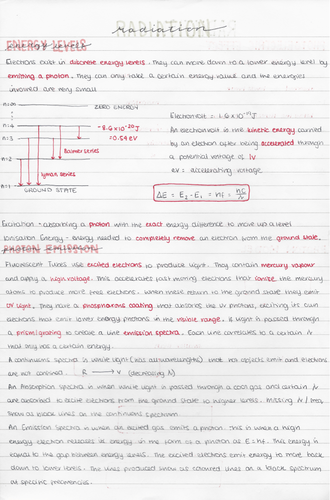 RADIATION
radiation
ENERGY LEVELS
energy levels
Electrons exist in discrete energy levels. They can move down to a lower energy level by
emitting a photon. They can only take a certain energy value and the energies
involved are very small
n=∞ ZERO ENERGY
n=4 -8.6×10⁻²⁰J
n=3 =0.54eV
Balmer series
n=2
Lyman series
n=1 GROUND STATE
Electronvolt = 1.6×10⁻¹⁹J
An electronvolt is the kinetic energy carried
by an electron after being accelerated through
a potential voltage of 1V
eV = accelerating voltage
ΔE = E₂ - E₁ = hf = hc/λ
Excitation - absorbing a photon with the exact energy difference to move up a level
Ionisation Energy - energy needed to completely remove an electron from the ground state.
PHOTON EMISSION
photon emission
Fluorescent Tubes use excited electrons to produce light. They contain mercury vapour
and apply a high voltage. This accelerates fast moving electrons that ionise the mercury
atoms to produce more free electrons. When these return to the ground state they emit
UV light. They have a phosphorus coating that absorbs the UV photons, exciting its own
electrons that emit lower energy photons in the visible range. If light is passed through
a prism/grating to create a line emission spectra. Each line correlates to a certain λ
that only has a certain energy.
A continuous spectra is white light (has all wavelengths) that hot objects emit and electrons
are not confined. R → V (decreasing λ)
An Absorption Spectra is when white light is passed through a cool gas and certain λ
are absorbed to excite electrons from the ground state to higher levels. Missing λ / freq
show as black lines on the continuous spectrum.
An Emission Spectra is when an excited gas emits a photon. This is when a high
energy electron releases its energy in the form of a photon as E=hf. This energy is
equal to the gap between energy levels. The excited electrons emit energy to move back
down to lower levels. The lines produced show as coloured lines on a black spectrum
at specific frequencies.